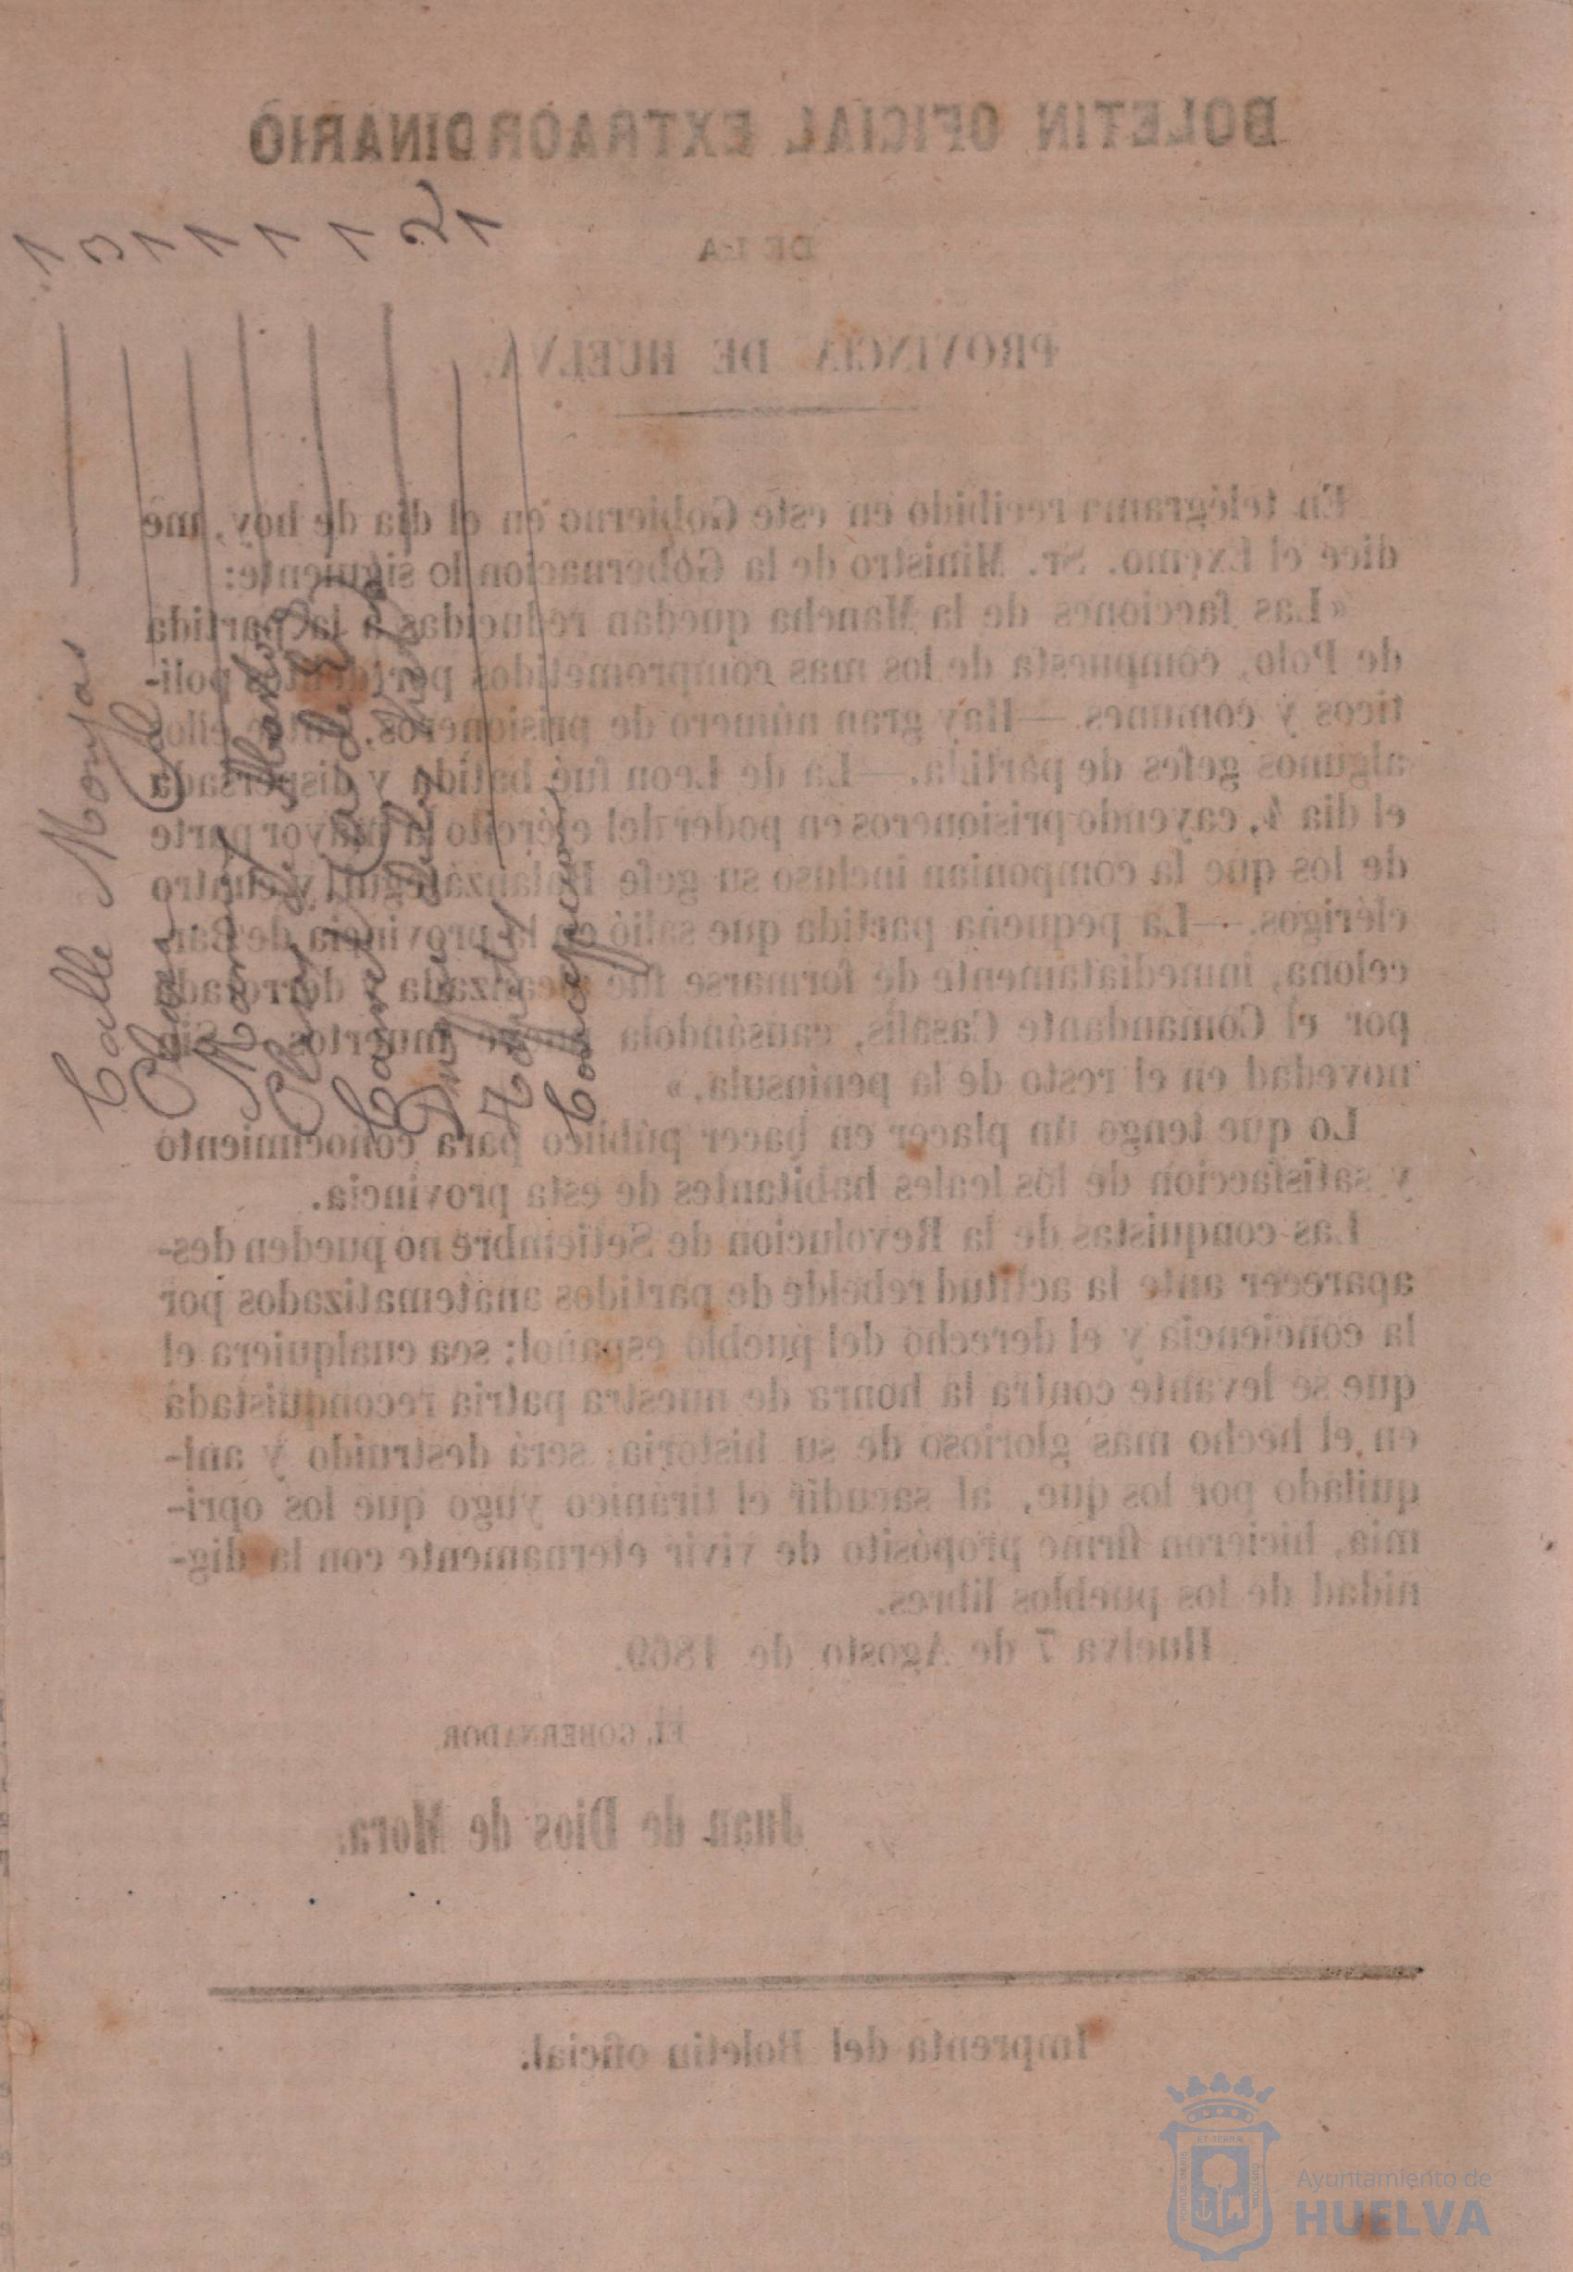 BOLETIN OFICIAL EXTRAORDINARIO
DE LA
PROVINCIA DE HUELVA.
En telégrama recibido en este Gobierno en el dia de hoy, me
dice el Excmo. Sr. Ministro de la Gobernacion lo siguiente:
«Las facciones de la Mancha quedan reducidas á la partida
de Polo, compuesta de los mas comprometidos por delitos polí-
ticos y comunes.—Hay gran número de prisioneros, entre ellos
algunos gefes de partida.—La de Leon fué batida y dispersada
el dia 4, cayendo prisioneros en poder del ejército la mayor parte
de los que la componian incluso su gefe Balanzátegui y cuatro
clérigos.—La pequeña partida que salió en la provincia de Bar-
celona, inmediatamente de formarse fué alcanzada y derrotada
por el Comandante Casalis, causándola muertos.—Sin
novedad en el resto de la península.»
Lo que tengo un placer en hacer público para conocimiento
y satisfaccion de los leales habitantes de esta provincia.
Las conquistas de la Revolucion de Setiembre no pueden des-
aparecer ante la actitud rebelde de partidos anatematizados por
la conciencia y el derecho del pueblo español; sea cualquiera el
que se levante contra la honra de nuestra patria reconquistada
en el hecho mas glorioso de su historia; será destruido y ani-
quilado por los que, al sacudir el tiránico yugo que los opri-
mia, hicieron firme propósito de vivir eternamente con la dig-
nidad de los pueblos libres.
Huelva 7 de Agosto de 1869.
EL GOBERNADOR
Juan de Dios de Mora.
Imprenta del Boletin oficial.
Calle Monjas 1
1
1
1
1
1
2
Concepcion 1
Ayuntamiento de
HUELVA